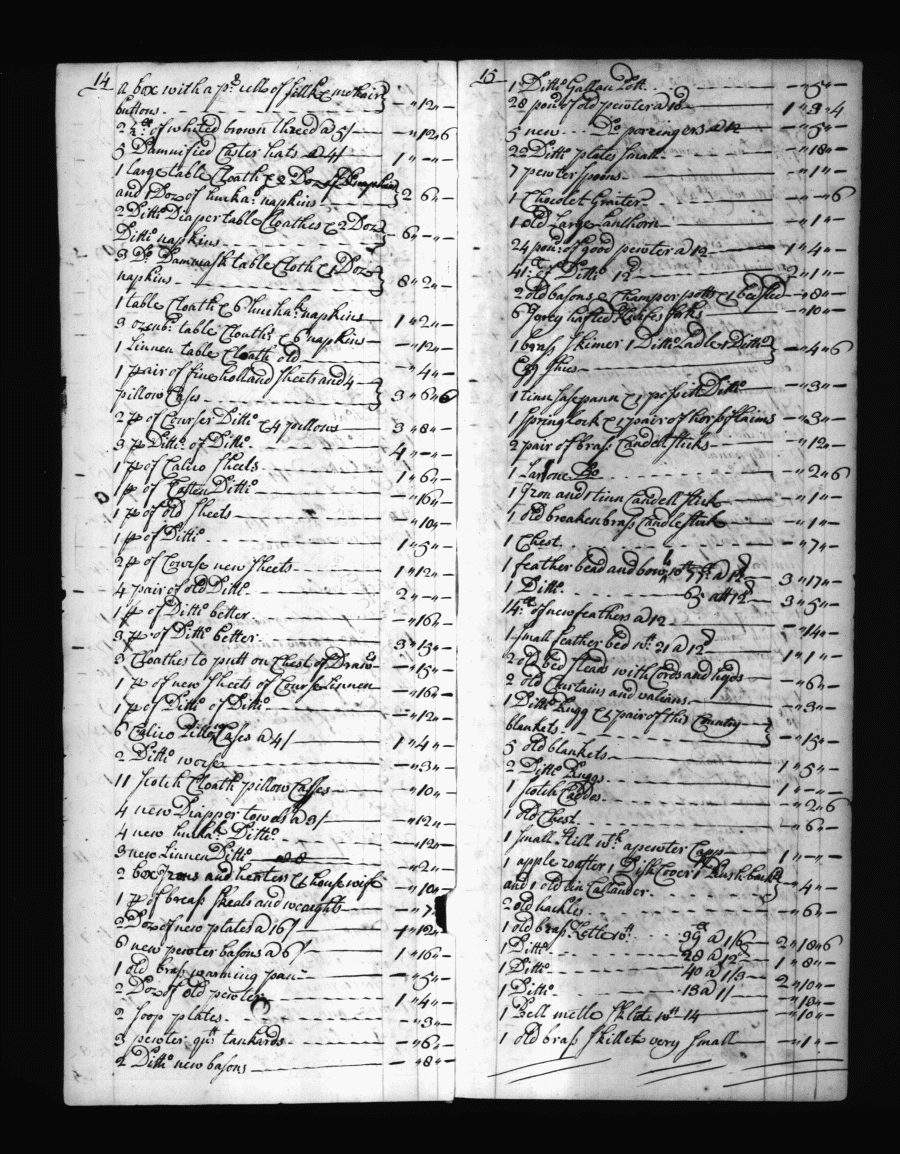 14
a box with a p:cells of silk & mohair
buttons. — " 12 " —
2 lb of whited brown thread a 5/ — " 12 " 6
5 Damnified Caster hats a 4/ 1 " — " —
1 large table Cloath & 2 Doz of Napkins
and Doz of hucka: napkins 2 " 6 " —
2 Ditto Diaper table Cloathes & 2 Doz
Ditto napkins 6 " — " —
3 Do Dammask table Cloth & Doz
napkins 8 " 2 " —
1 table Cloath & 6 hucka: napkins 1 " 2 " —
3 ozenb: table Cloaths & 6 napkins — " 12 " —
1 Linnen table Cloath old — " 4 " —
1 pair of fine holland sheets and 4
pillow Cases 3 " 6 " 6
2 pr of Courser Ditto & 4 pillows 3 " 8 " —
3 pr Ditto of Ditto. 4 " — " —
1 pr of Calico Sheets 1 " 6 " —
1 pr of Ditto — " 16 " —
1 pr of old Sheets — " 10 " —
1 pr of Ditto 1 " 5 " —
2 pr of Course new Sheets 1 " 12 " —
4 pair of old Ditto 2 " — " —
1 pr of Ditto better — " 16 " —
3 pr of Ditto better 3 " 15 " —
3 Cloathes to putt on Chest of Draws — " 15 " —
1 pr of new sheets of Course Linnen — " 16 " —
1 pr of Ditto of Ditto — " 12 " —
6 Calico Pillow Cases a 4/ 1 " 4 " —
2 Ditto worse — " 3 " —
11 Scotch Cloath pillow Casses — " 10 " —
4 new Diapper towels a 3/ — " 12 " —
4 new hucka: Ditto — " 12 " —
3 new Linnen Ditto — " 2 " —
2 box Irons and heaters & housewife — " 10 " —
1 pr of brass Skeals and weaights — " 7 " —
2 Doz of new plates a 16/ 1 " 12 " —
6 new pewter basons a 6/ 1 " 16 " —
1 old brass warming pan — " 5 " —
2 Doz of old pewter 1 " 4 " —
2 soop plates — " 3 " —
3 pewter qrt tankards — " 6 " —
2 Ditto new basons — " 8 " —
15
1 Ditto Gallan Pott — " 5 " —
28 poun of old pewter a 10 1 " 3 " 4
5 new Do porringers a 12 — " 5 " —
22 Ditto plates small — " 18 " —
7 pewter spoons — " 1 " —
1 Chocolet Graiter — " — " 6
1 old Large Lanthorn — " 1 " —
24 poun: of good pewter a 12 1 " 4 " —
41: of Ditto 12d 2 " 1 " —
2 old basons & Champer potts & bedsted — " 8 " —
6 Jvery hafted Knifes forks — " 10 " —
1 brass Skimer 1 Ditto Ladle 1 Ditto
Egg slice — " 4 " 6
1 tinn sasepann & 1 possett Ditto — " 3 " —
1 Spring lock & 1 pair of horss flaims — " 3 " —
2 pair of brass Candelsticks — " 12 " —
1 Do — " 2 " 6
1 Iron and 1 tinn Candell stick — " 1 " —
1 old breaken brass Candlestick — " 1 " —
1 Chest — " 7 " —
1 feather bead and 77 a 12d 3 " 17 " —
1 Ditto 65 att 12d 3 " 5 " —
14: of new feathers a 12 — " 14 " —
1 small feather bed wt. 21 a 12d 1 " 1 " —
2 old bed steads with Cords and — " 6 " —
2 old Curtains and valians — " 3 " —
1 Ditto Rugg & 1 pair of this Country
blankets — " 15 " —
5 old blankets 1 " 5 " —
2 Ditto Ruggs 1 " — " —
1 Scotch Caddos — " 2 " 6
1 old Chest — " 6 " —
1 small Still wth a pewter Capp 1 " — " —
1 apple roaster 1 Dish Cover 1
and 1 old tin Callander — " 4 " —
2 old hackles — " 6 " —
1 old brass Kettle wtt 39 a 1/6 2 " 18 " 6
1 Ditto 28 a 12d 1 " 8 " —
1 Ditto 40 a 1/3 2 " 10 " —
1 Ditto 13 a 11 — " 13 " —
1 Bell mettle Skilett wtt 14 — " 10 " —
1 old brass Skillet very small — " 1 " —